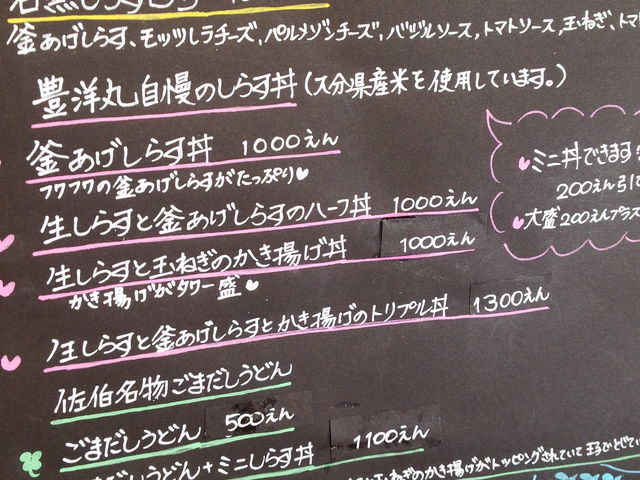 釜あげしらす、モッツレラチーズ、パルメゾンチーズ、バジルソース、トマトソース、玉ねぎ、トマ
豊洋丸自慢のしらす丼(大分県産米を使用しています。)
釜あげしらす丼 1000えん
フワフワの釜あげしらすがたっぷり♥
生しらすと釜あげしらすのハーフ丼 1000えん
生しらすと玉ねぎのかき揚げ丼 1000えん
かき揚げがタワー盛♥
生しらすと釜あげしらすとかき揚げのトリプル丼 1300えん
佐伯名物ごまだしうどん
ごまだしうどん 500えん
ごまだしうどん+ミニしらす丼 1100えん
♥ミニ丼できます
200えん引に
♥大盛200えんプラス